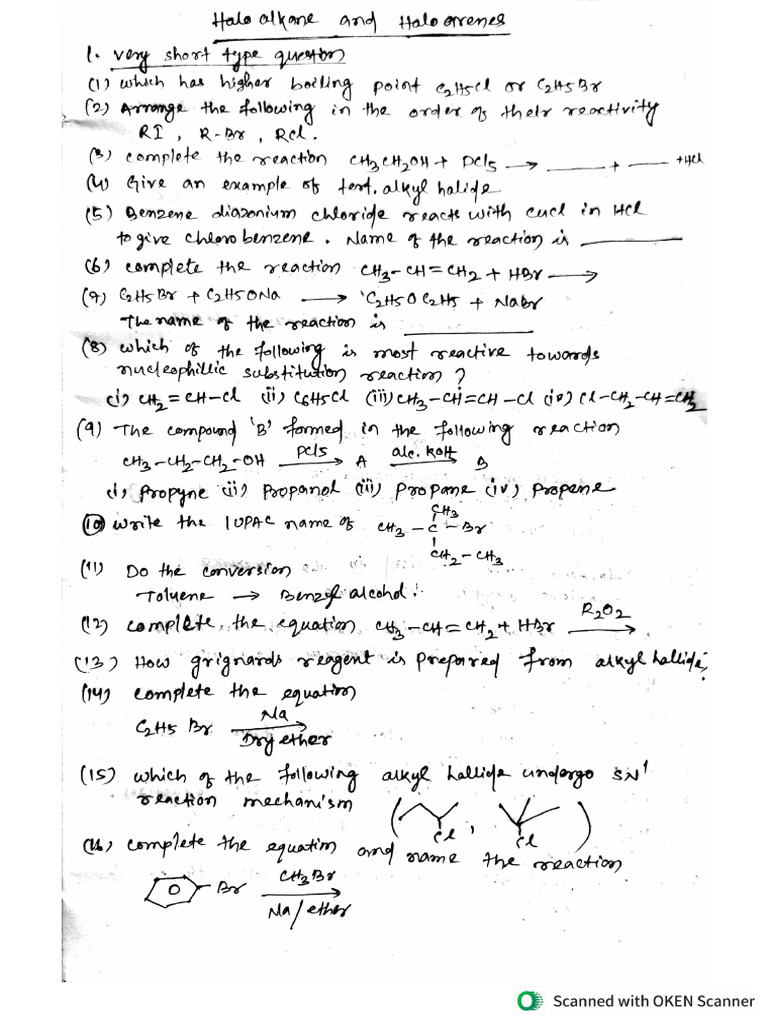 Halo alkane and Halo arenes
1. very short type question
(1) which has higher boiling point C2H5Cl or C2H5Br
(2) Arrange the following in the order of their reactivity
RI, R-Br, RCl.
(3) complete the reaction CH3CH2OH + PCl5 → ____ + ____ + HCl
(4) Give an example of tert. alkyl halide
(5) Benzene diazonium chloride reacts with CuCl in HCl
to give chlorobenzene. Name of the reaction is ________
(6) complete the reaction CH3-CH=CH2 + HBr →
(7) C2H5Br + C2H5ONa → C2H5OC2H5 + NaBr
The name of the reaction is ________
(8) which of the following is most reactive towards
nucleophillic substitution reaction?
(i) CH2=CH-Cl (ii) C6H5Cl (iii) CH3-CH=CH-Cl (iv) Cl-CH2-CH=CH2
(9) The compound 'B' formed in the following reaction
CH3-CH2-CH2-OH PCl5 → A alc. KOH → B
(i) Propyne (ii) Propanol (iii) Propane (iv) Propene
(10) write the IUPAC name of CH3-C-Br
CH3
CH2-CH3
(11) Do the conversion
Toluene → Benzyl alcohol.
(12) complete the equation CH3-CH=CH2+HBr R2O2 →
(13) How grignards reagent is prepared from alkyl hallide,
(14) complete the equation
C2H5Br Na →
Dry ether
(15) which of the following alkyl hallide undergo SN1
reaction mechanism ( Cl , Cl )
(16) complete the equation and name the reaction
Br CH3Br →
Na/ether
Scanned with OKEN Scanner